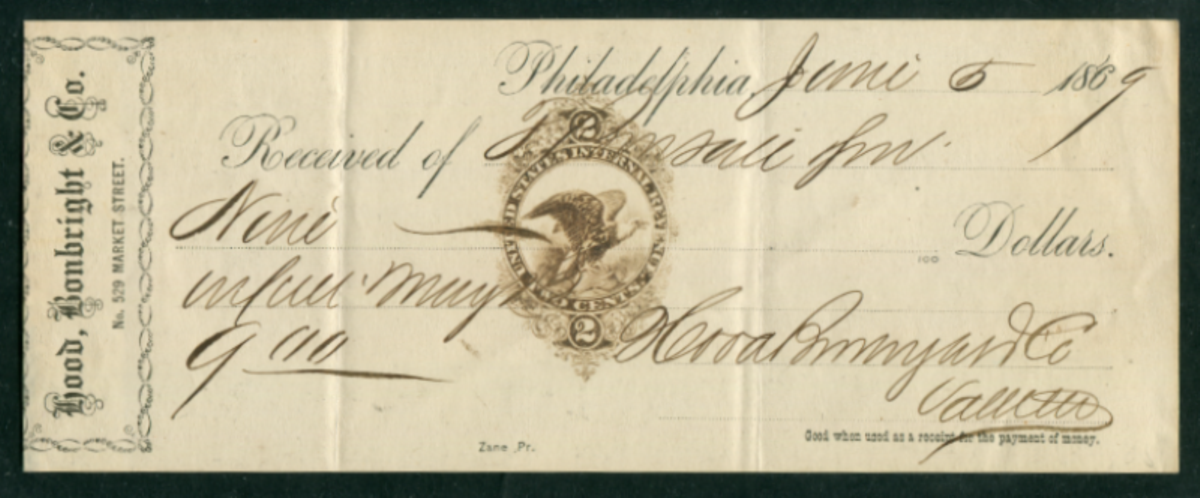 Hood, Bonbright & Co.
No. 529 MARKET STREET.
Philadelphia, June 5 1869
Received of
Nine 100 Dollars.
in full May
9 00
2
UNITED STATES INTERNAL REVENUE
TWO CENTS.
2
Hood Bonbright & Co
Good when used as a receipt for the payment of money.
Zane, Pr.